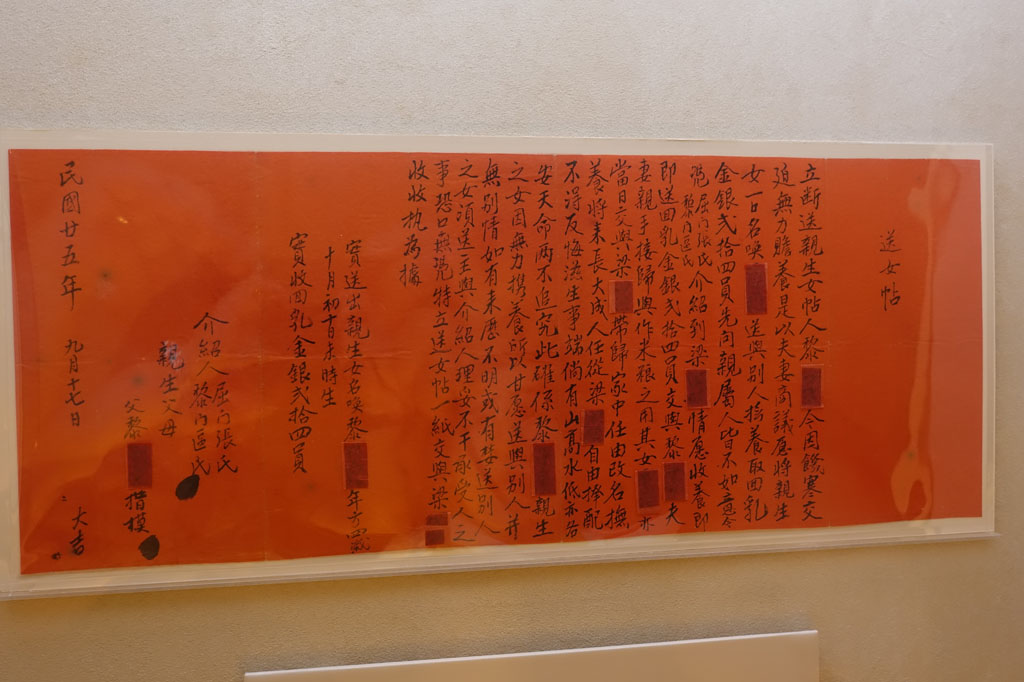 送女帖
立断送親生女帖人黎 今因饑寒交
迫無力贍養是以夫妻啇議愿將親生
女一口名喚 送與別人撫養取囬乳
金銀弍拾四員先向親屬人皆不如意
屈门張氏
黎门區氏介紹到梁 情愿收養即
即送囬乳金銀弍拾四員交與黎 夫
妻親手接歸與作米粮之用其女 亦
當日交與梁 帶歸家中任由改名撫
養將来長大成人任從梁 自由擇配
不得反悔滋生事端倘有山高水低亦各
安天命两不追究此確係黎 親生
之女因無力携養所以甘愿送與別人并
無別情如有来歴不明或有 送別人
之女須送主與介紹人理妥不干承受人之
事恐口無凭特立送女帖一紙交與梁
收收执為據
實送出親生女名喚黎 年方四歲
十月初十日未時生
實收囬乳金銀弍拾四員
介紹人屈门張氏
黎门區氏
親生父母
父黎 揩模
民國廿五年 九月十七日
大吉